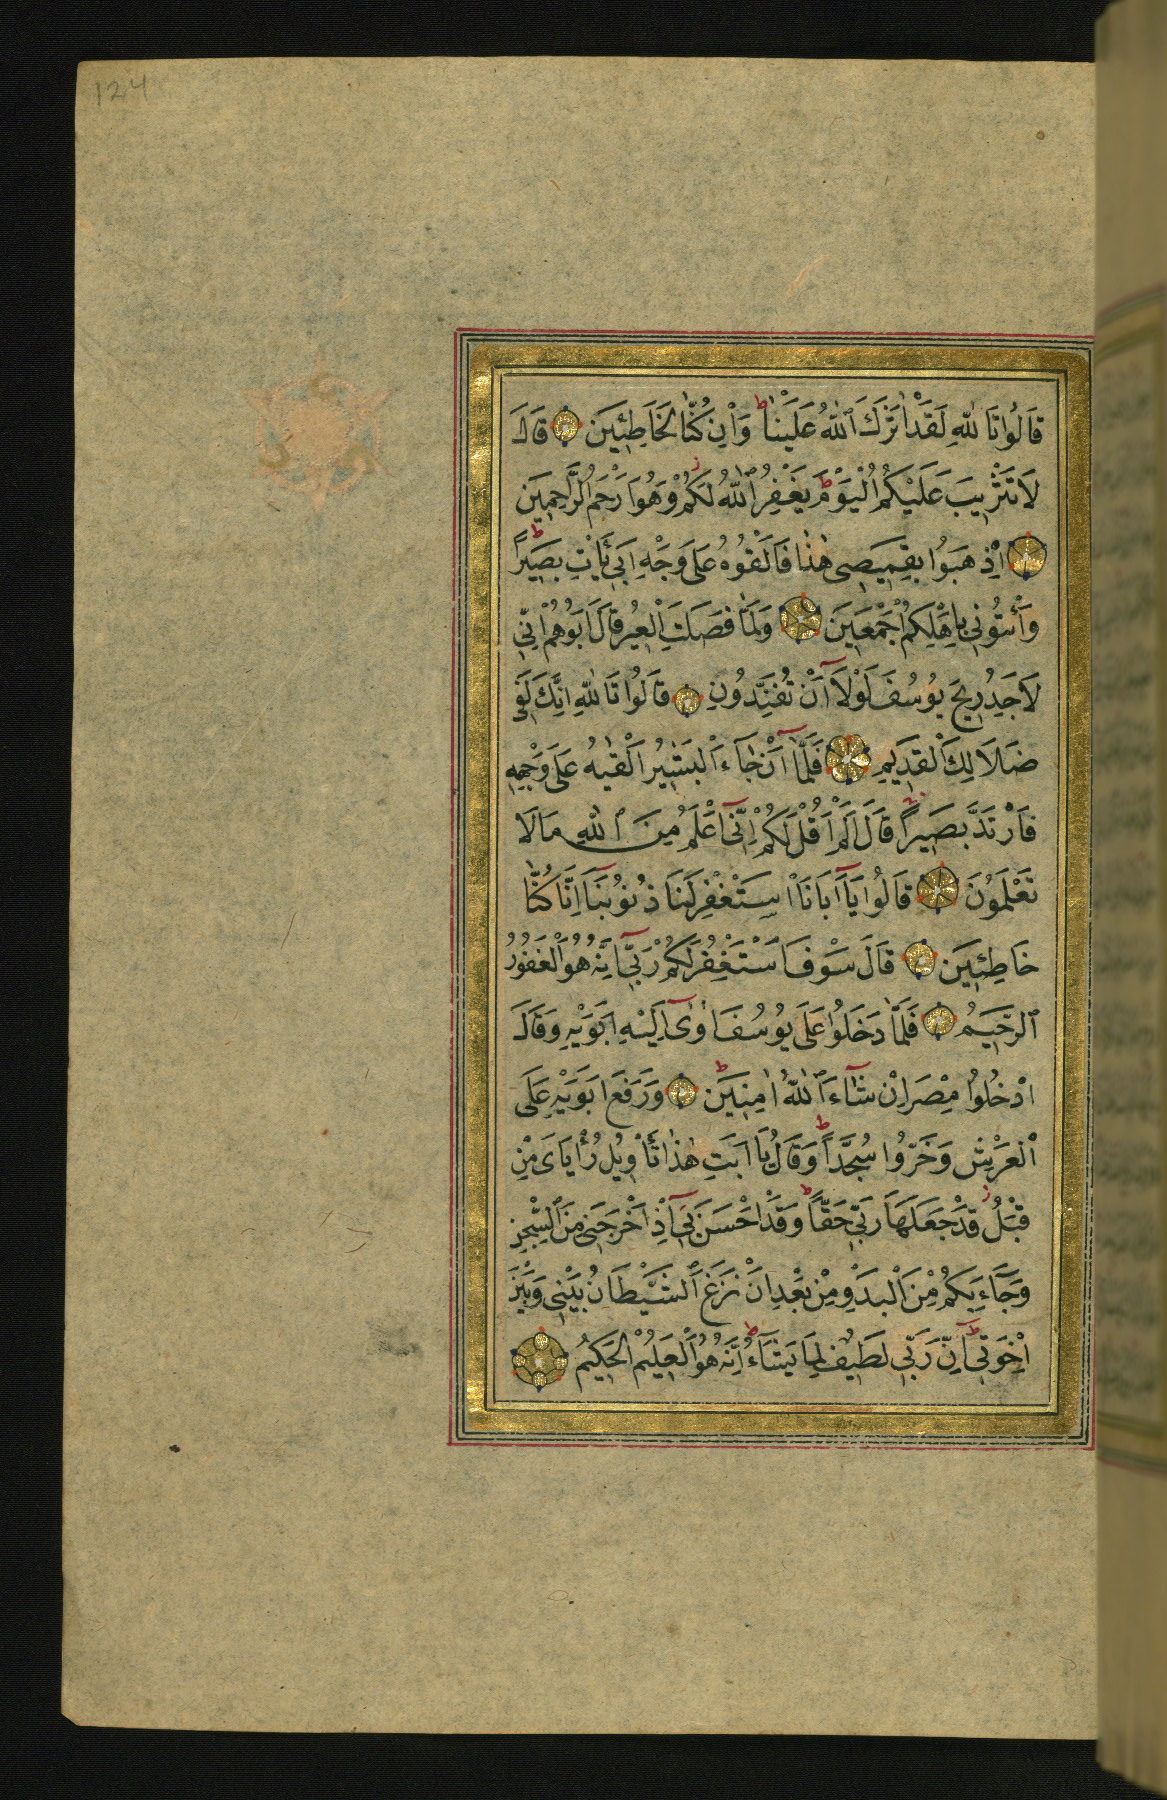 124
قَالُوا تَاللّٰهِ لَقَدْ اٰثَرَكَ ٱللّٰهُ عَلَيْنَا ط وَاِنْ كُنَّا لَخَاطِئِينَ قَالَ
لَا تَثْرِيبَ عَلَيْكُمُ الْيَوْمَ ط يَغْفِرُ ٱللّٰهُ لَكُمْ ز وَهُوَ اَرْحَمُ الرَّاحِمِينَ
اِذْهَبُوا بِقَمِيصِى هٰذَا فَاَلْقُوهُ عَلَى وَجْهِ اَبِى يَأْتِ بَصِيرًا ط
وَأْتُونِى بِاَهْلِكُمْ اَجْمَعِينَ وَلَمَّا فَصَلَتِ الْعِيرُ قَالَ اَبُوهُمْ اِنِّى
لَاَجِدُ رِيحَ يُوسُفَ لَوْلَآ اَنْ تُفَنِّدُونِ قَالُوا تَاللّٰهِ اِنَّكَ لَفِى
ضَلَالِكَ الْقَدِيمِ فَلَمَّآ اَنْ جَآءَ الْبَشِيرُ اَلْقٰيهُ عَلَى وَجْهِهِ
فَارْتَدَّ بَصِيرًا قَالَ اَلَمْ اَقُلْ لَكُمْ اِنِّىٓ اَعْلَمُ مِنَ ٱللّٰهِ مَا لَا
تَعْلَمُونَ قَالُوا يَآ اَبَانَا اسْتَغْفِرْ لَنَا ذُنُوبَنَآ اِنَّا كُنَّا
خَاطِئِينَ قَالَ سَوْفَ اَسْتَغْفِرُ لَكُمْ رَبِّىٓ اِنَّهُ هُوَ الْغَفُورُ
ٱلرَّحِيمُ فَلَمَّا دَخَلُوا عَلَى يُوسُفَ اٰوٰٓى اِلَيْهِ اَبَوَيْهِ وَقَالَ
ادْخُلُوا مِصْرَ اِنْ شَآءَ ٱللّٰهُ اٰمِنِينَ ط وَرَفَعَ اَبَوَيْهِ عَلَى
ٱلْعَرْشِ وَخَرُّوا لَهُ سُجَّدًا ط وَقَالَ يَا اَبَتِ هٰذَا تَأْوِيلُ رُءْيَاىَ مِنْ
قَبْلُ ز قَدْ جَعَلَهَا رَبِّى حَقًّا ط وَقَدْ اَحْسَنَ بِىٓ اِذْ اَخْرَجَنِى مِنَ ٱلسِّجْنِ
وَجَآءَ بِكُمْ مِنَ الْبَدْوِ مِنْ بَعْدِ اَنْ نَزَغَ ٱلشَّيْطَانُ بَيْنِى وَبَيْنَ
اِخْوَتِىٓ ط اِنَّ رَبِّى لَطِيفٌ لِمَا يَشَآءُ ط اِنَّهُ هُوَ الْعَلِيمُ الْحَكِيمُ